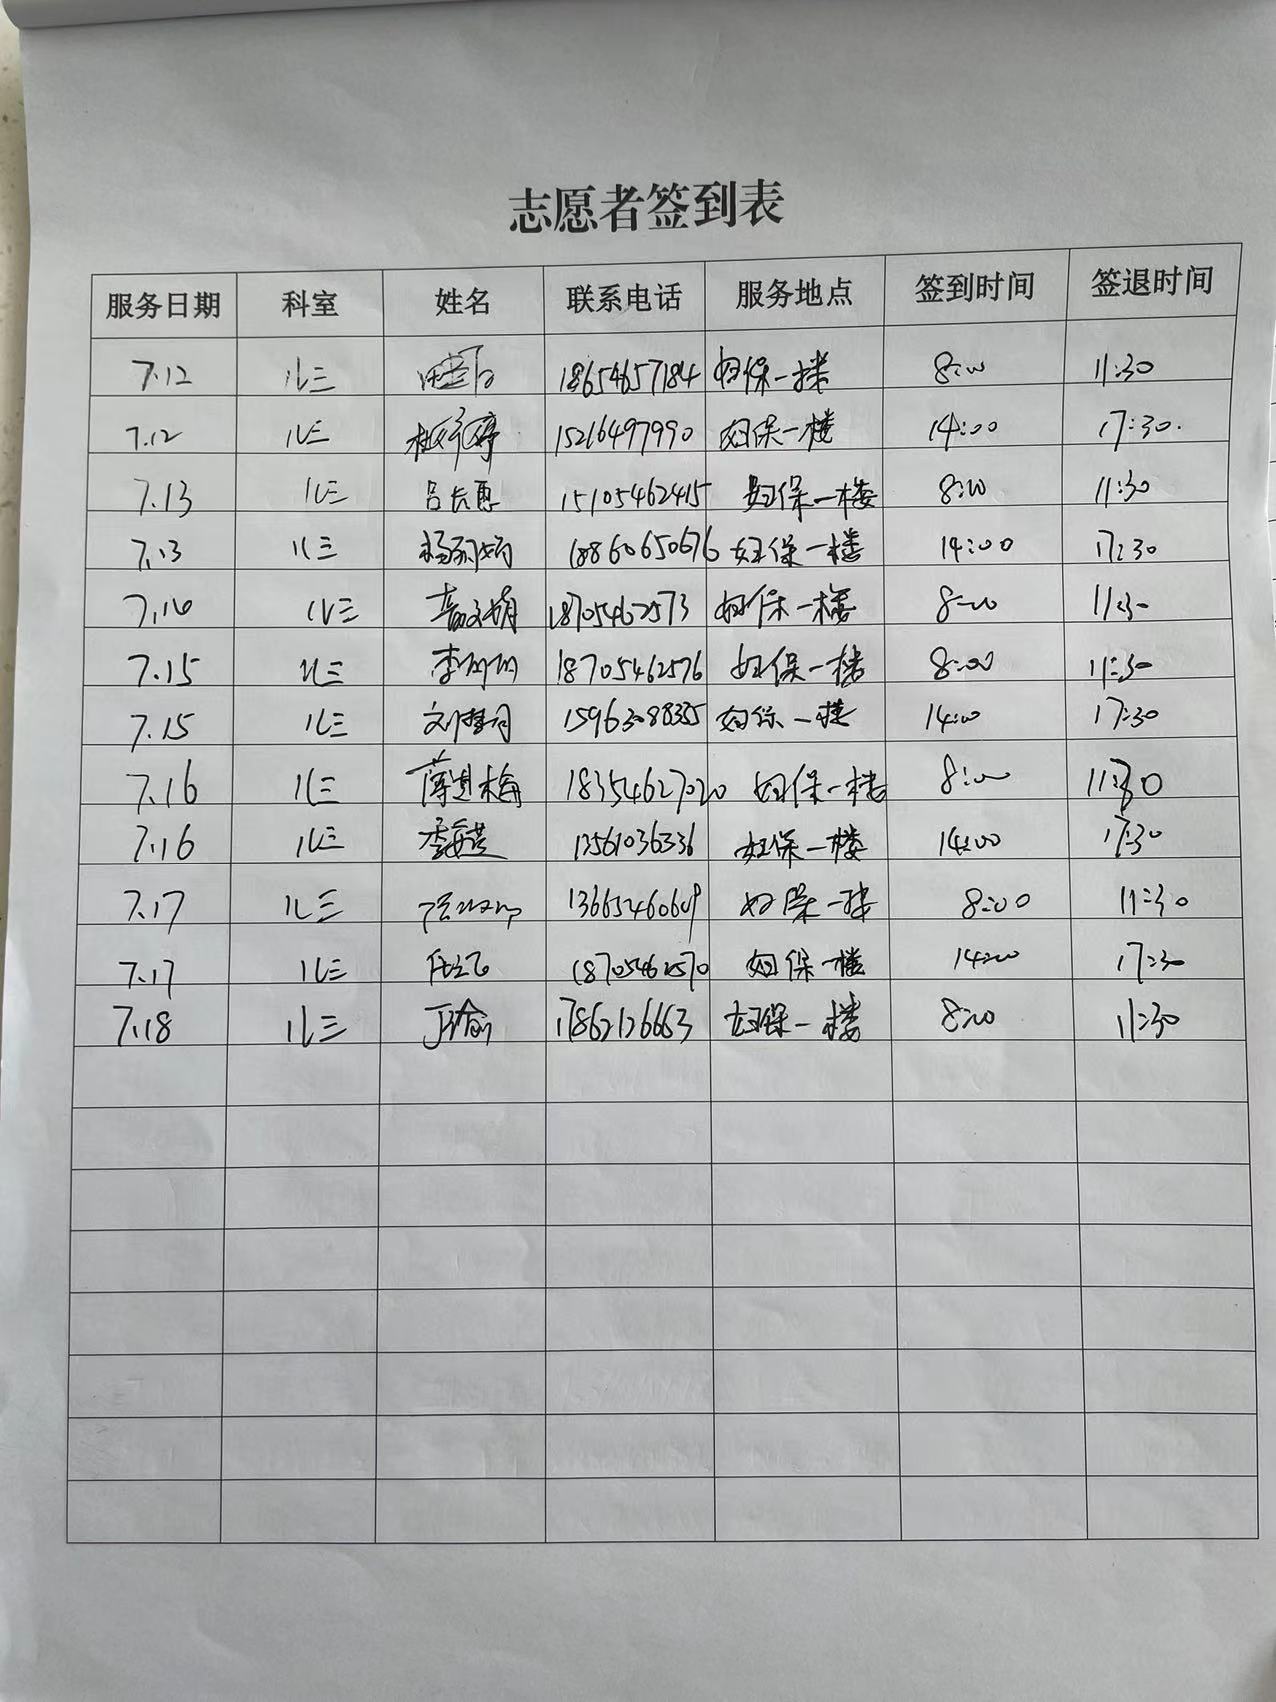 志愿者签到表
服务日期 科室 姓名 联系电话 服务地点 签到时间 签退时间
7.12 儿三 18654657184 妇保一楼 8:00 11:30
7.12 儿三 15216497990 妇保一楼 14:00 17:30.
7.13 儿三 15105462415 妇保一楼 8:00 11:30
7.13 儿三 18860650676 妇保一楼 14:00 17:30
儿三 18705462573 妇保一楼 8:00 11:30
7.15 儿三 18705462576 妇保一楼 8:00 11:30
7.15 儿三 妇保一楼 14:00 17:30
7.16 儿三 薄进梅 18354627020 妇保一楼 8:00 11:30
7.16 儿三 妇保一楼 14:00 17:30
7.17 儿三 妇保一楼 8:00 11:30
7.17 儿三 18705462570 妇保一楼 14:00 17:30
7.18 儿三 17862126663 妇保一楼 8:00 11:30